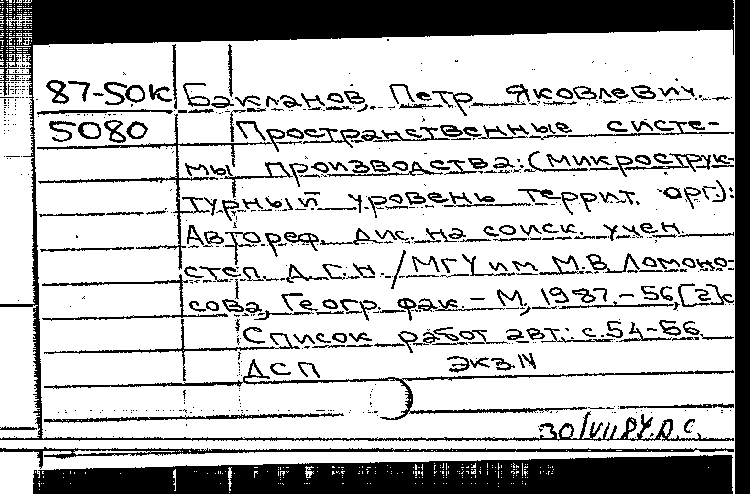 87-50к Бакланов, Петр Яковлевич.
5080 Пространственные систе-
мы производства: (микрострук-
турный уровень террит. орг.):
Автореф. дис. на соиск. учен.
степ. д.г.н. / МГУ им. М.В. Ломоно-
сова, Геогр. фак. - М, 1987. - 56, [2] с
Список работ авт.: с. 54-56
ДСП Экз. N
30/VII